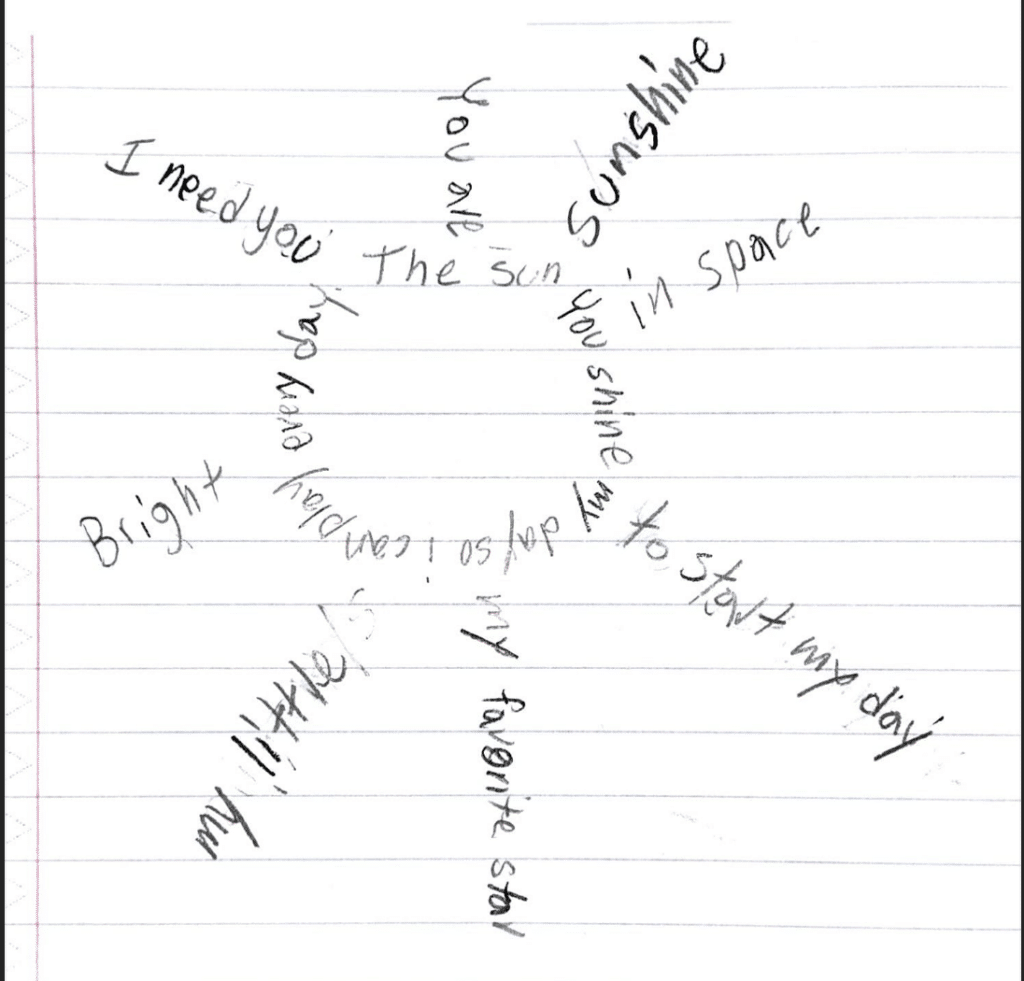 The sun you shine my day so i can play every day
You are
Sunshine
in space
to start my day
my favorite star
my little
Bright
I need you